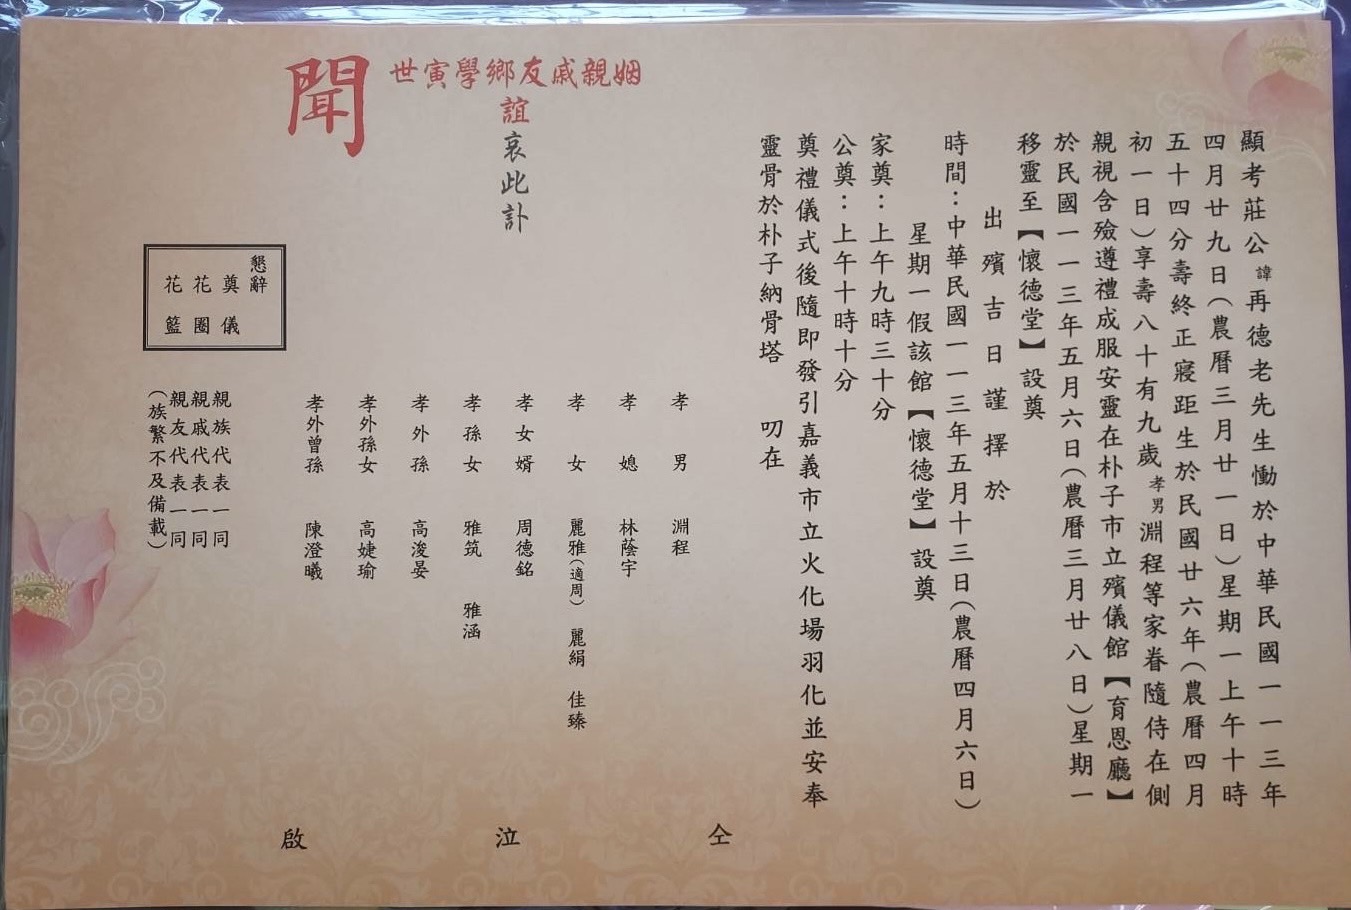 顯考莊公諱再德老先生慟於中華民國一一三年
四月廿九日(農曆三月廿一日)星期一上午十時
五十四分壽終正寢距生於民國廿六年(農曆四月
初一日)享壽八十有九歲孝男淵程等家眷隨侍在側
親視含殮遵禮成服安靈在朴子市立殯儀館【育恩廳】
於民國一一三年五月六日(農曆三月廿八日)星期一
移靈至【懷德堂】設奠
出殯吉日謹擇於
時間:中華民國一一三年五月十三日(農曆四月六日)
星期一假該館【懷德堂】設奠
家奠:上午九時三十分
公奠:上午十時十分
奠禮儀式後隨即發引嘉義市立火化場羽化並安奉
靈骨於朴子納骨塔 叨在
姻親戚友鄉學寅世
誼
哀此訃
聞
孝男 淵程
孝媳 林蔭宇
孝女 麗雅(適周) 麗絹 佳臻
孝女婿 周德銘
孝孫女 雅筑 雅涵
孝外孫 高浚晏
孝外孫女 高婕瑜
孝外曾孫 陳澄曦
仝 泣 啟
懇辭
奠儀
花圈
花籃
親族代表一同
親戚代表一同
親友代表一同
(族繁不及備載)